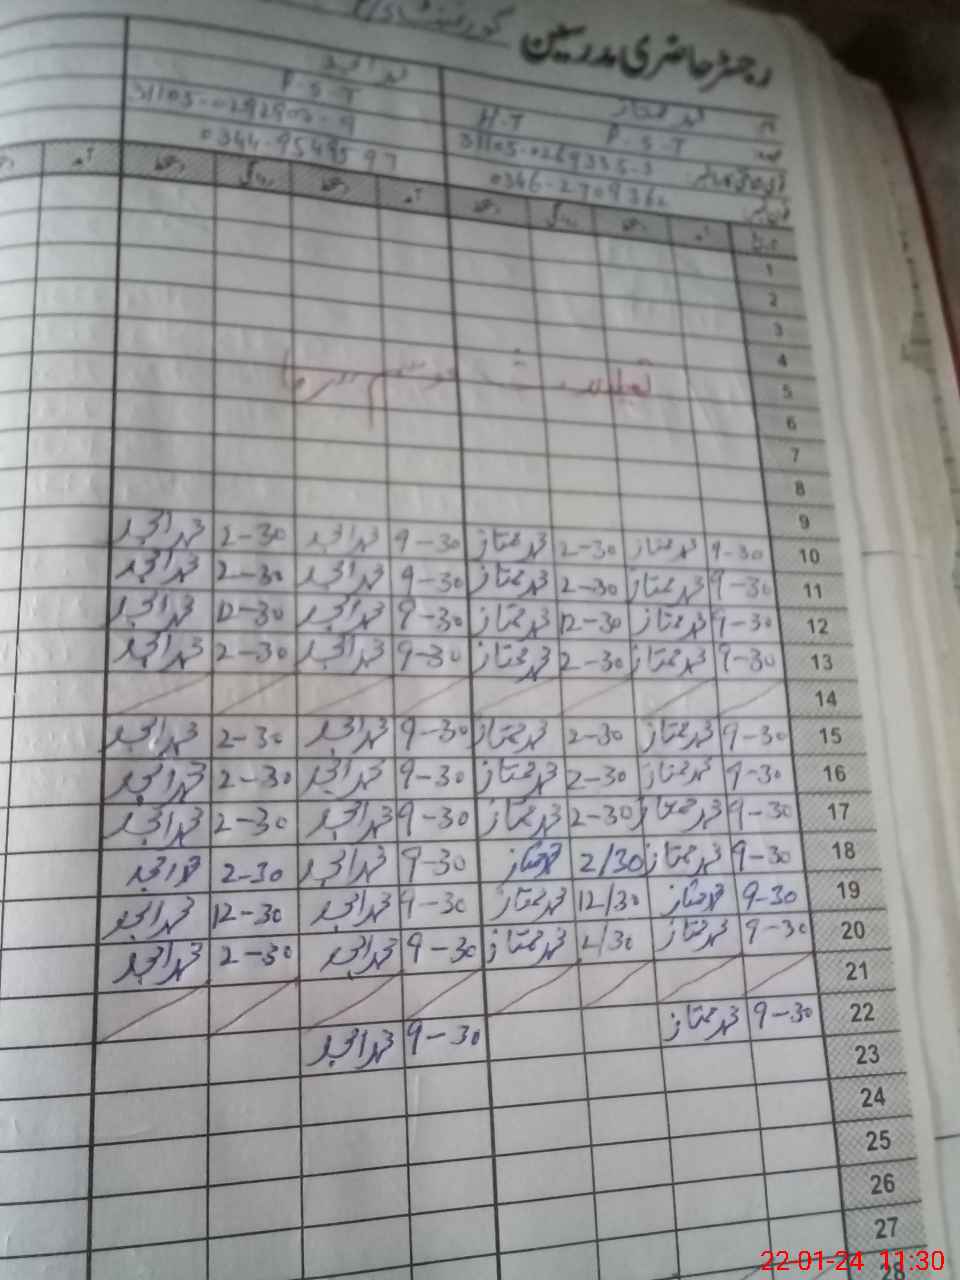 رجسٹر حاضری مدرسین گورنمنٹ
نام محمد ممتاز محمد امجد
عہدہ P.S.T H.T P.S.T
31105-0269335-3 31105-0292903-9
0346-2709362 0344-9549597
تاریخ آمد دستخط روانگی دستخط آمد دستخط روانگی دستخط آمد
1
2
3
4
تعطیلات موسم سرما
5
6
7
8
9
10 9-30 محمد ممتاز 2-30 محمد ممتاز 9-30 محمد امجد 2-30 محمد امجد
11 9-30 محمد ممتاز 2-30 محمد ممتاز 9-30 محمد امجد 2-30 محمد امجد
12 9-30 محمد ممتاز 12-30 محمد ممتاز 9-30 محمد امجد 12-30 محمد امجد
13 9-30 محمد ممتاز 2-30 محمد ممتاز 9-30 محمد امجد 2-30 محمد امجد
14
15 9-30 محمد ممتاز 2-30 محمد ممتاز 9-30 محمد امجد 2-30 محمد امجد
16 9-30 محمد ممتاز 2-30 محمد ممتاز 9-30 محمد امجد 2-30 محمد امجد
17 9-30 محمد ممتاز 2-30 محمد ممتاز 9-30 محمد امجد 2-30 محمد امجد
18 9-30 محمد ممتاز 2/30 محمد ممتاز 9-30 محمد امجد 2-30 محمد امجد
19 9-30 محمد ممتاز 12/30 محمد ممتاز 9-30 محمد امجد 12-30 محمد امجد
20 9-30 محمد ممتاز 2/30 محمد ممتاز 9-30 محمد امجد 2-30 محمد امجد
21
22 9-30 محمد ممتاز 9-30 محمد امجد
23
24
25
26
27
28
22-01-24 11:30